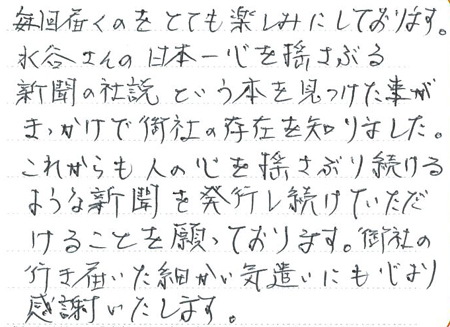 毎回届くのをとても楽しみにしております。
水谷さんの日本一心を揺さぶる
新聞の社説という本を見つけた事が
きっかけで御社の存在を知りました。
これからも人の心を揺さぶり続ける
ような新聞を発行し続けていただ
けることを願っております。御社の
行き届いた細かい気遣いにもじより
感謝いたします。